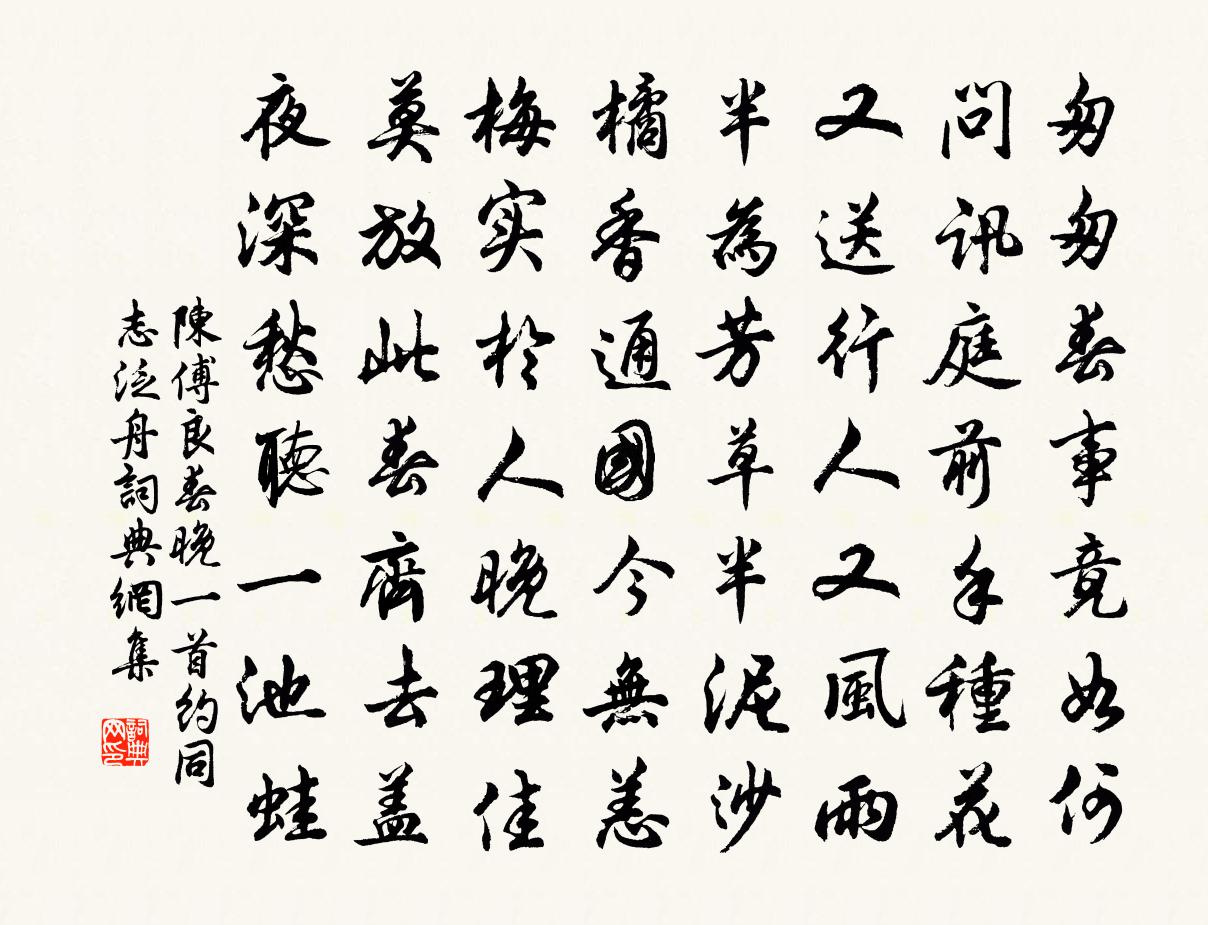 匆匆春事竟如何
問訊庭前手種花
又送行人又風雨
半為芳草半泥沙
橘香通國今無恙
梅实於人晚理佳
莫放此春齊去盖
夜深愁聽一池蛙
陳傅良春晚一首約同
志泛舟詞典網集
詞典
网印